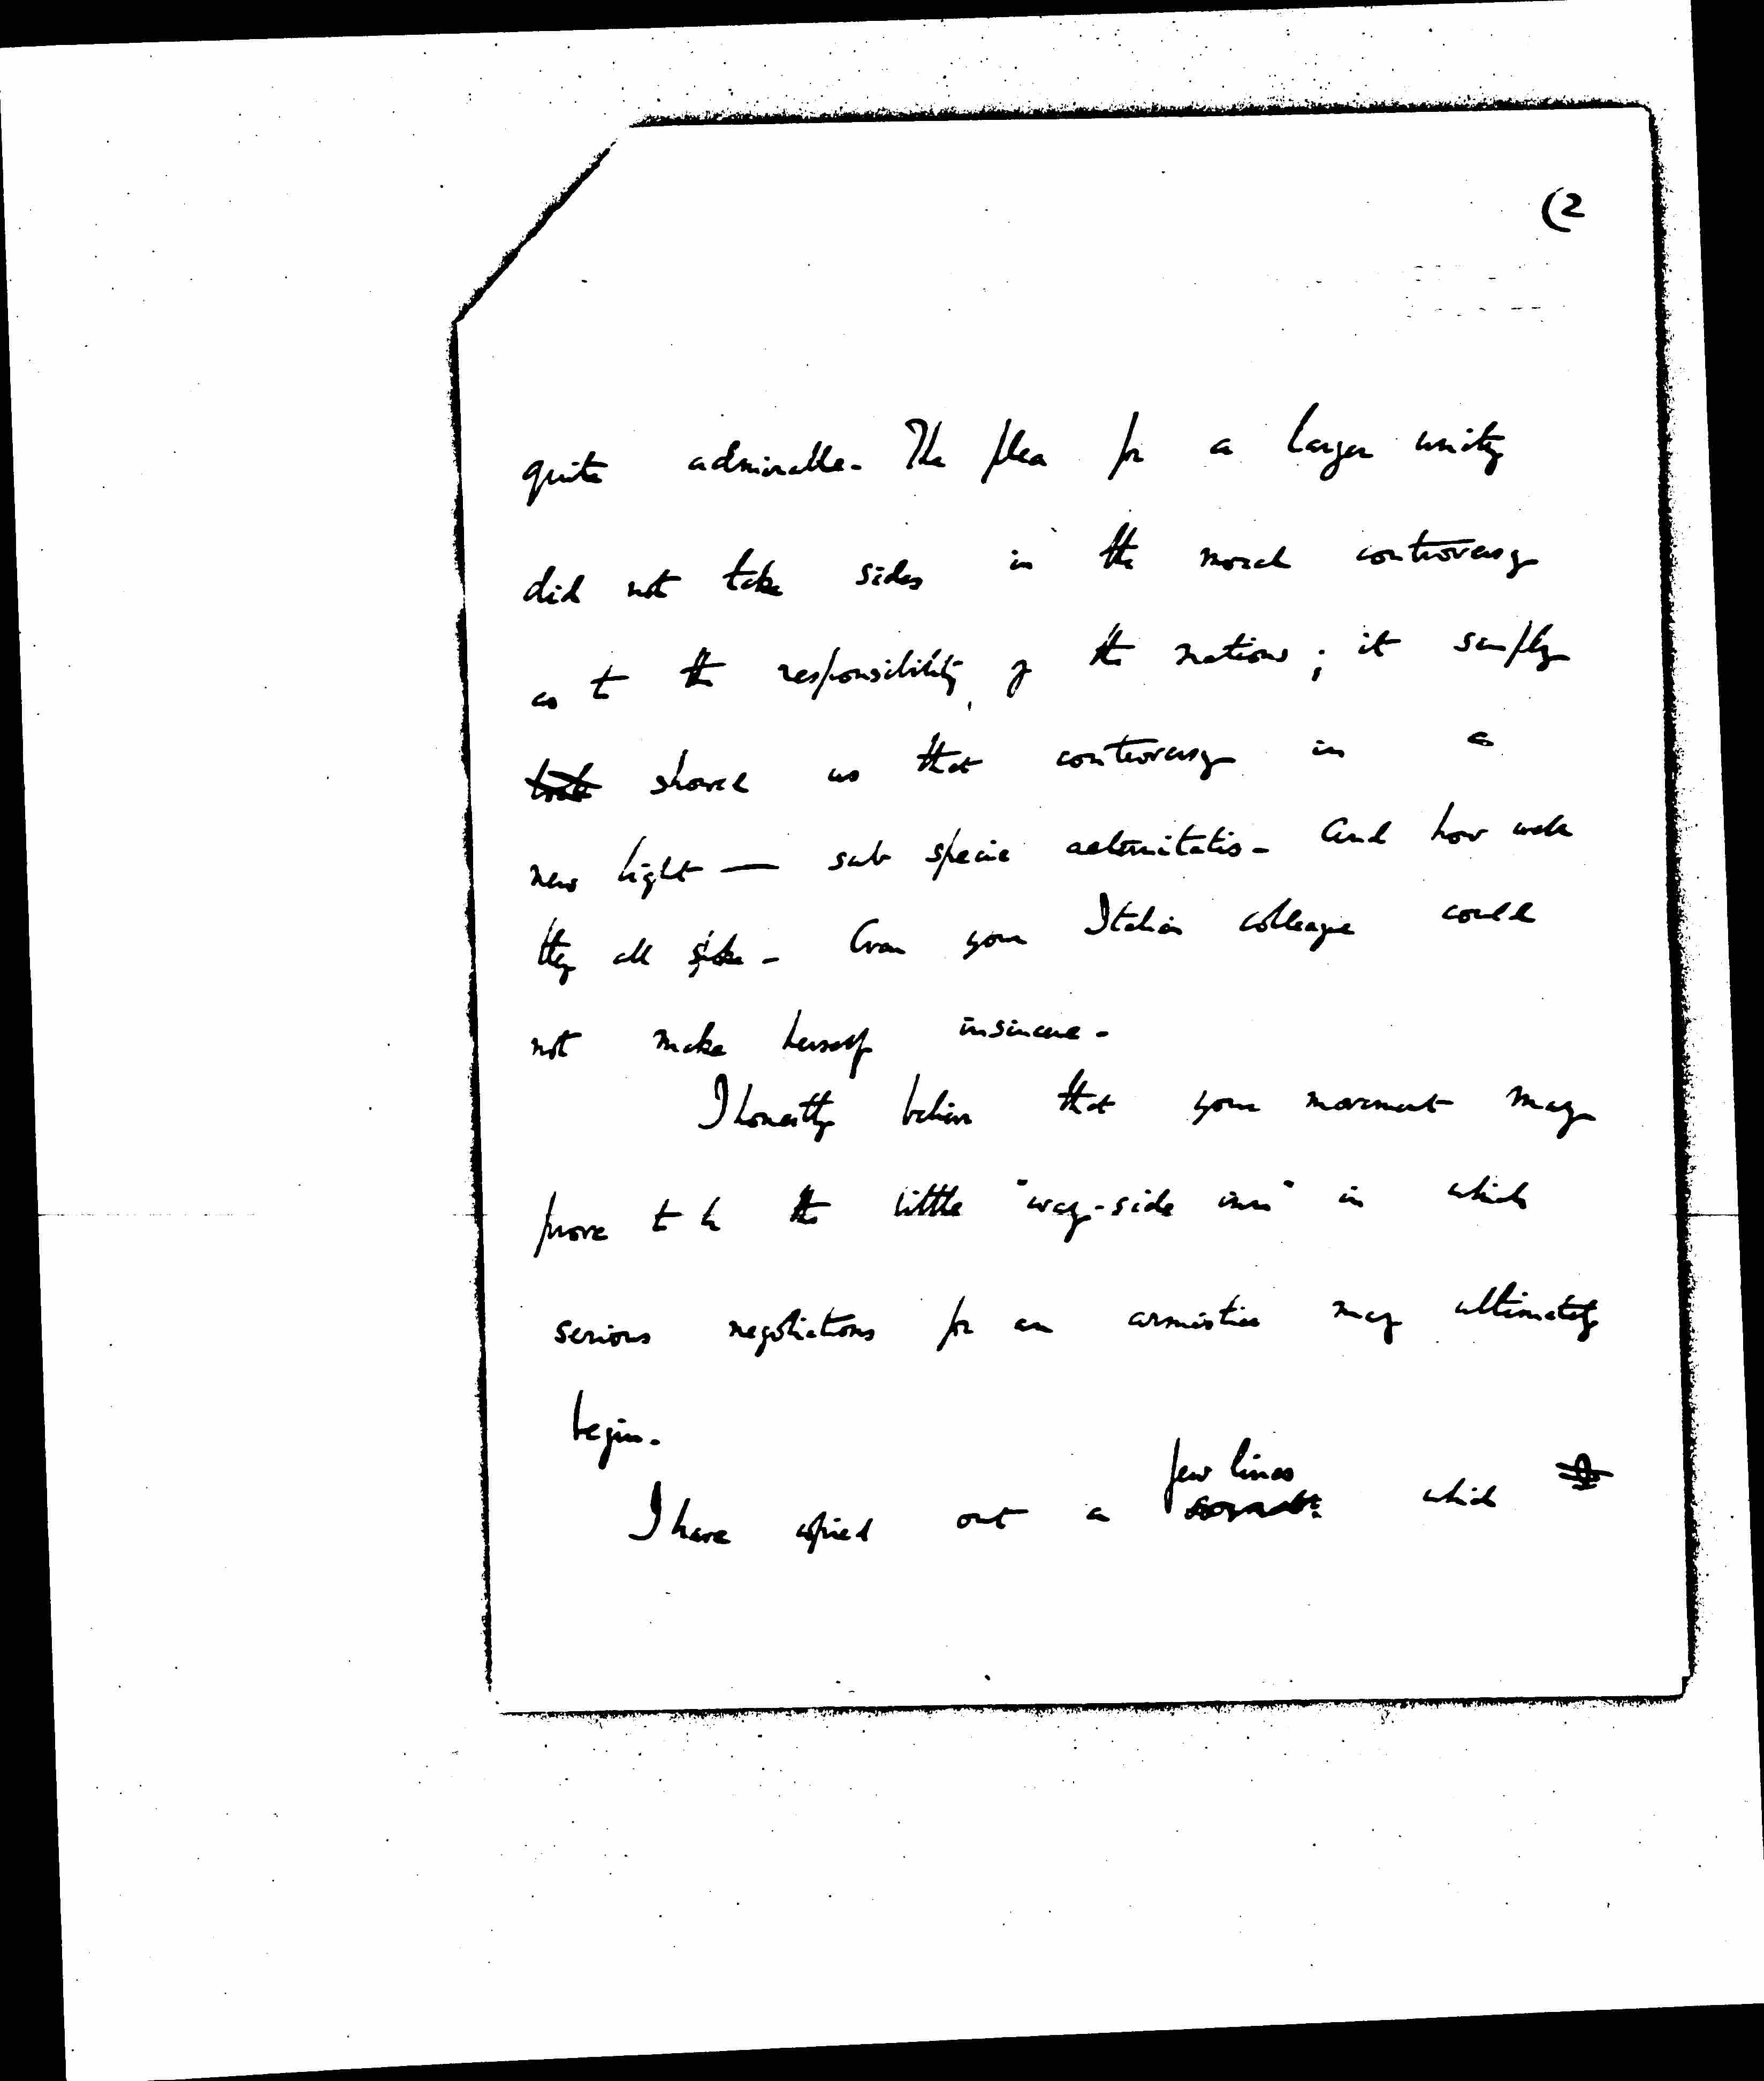 (2
quite admirable. The plea for a larger unity
did not take sides in the moral controversy
as to the responsibility of the nations; it simply
took showed us that controversy in a
new light — sub specie aeternitatis. And how well
they all spoke. Even your Italian colleague could
not make herself insincere.
I honestly believe that your movement may
prove to be the little "way-side inn" in which
serious negotiations for an armistice may ultimately
begin.
few lines
I have copied out a which